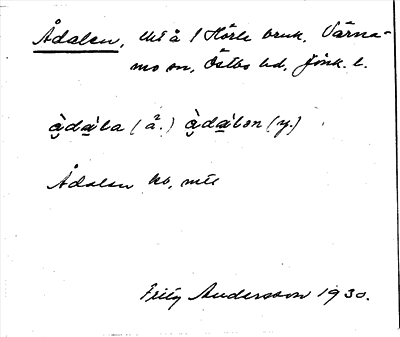 Ådalen, till å / Hörle bruk, Värna-
mo sn, Östbo hd, Jönk. l.
å̀dàla (ä.) å̀dàlən (y.)
Ådalen kb,
Fritz Andersson 1930.